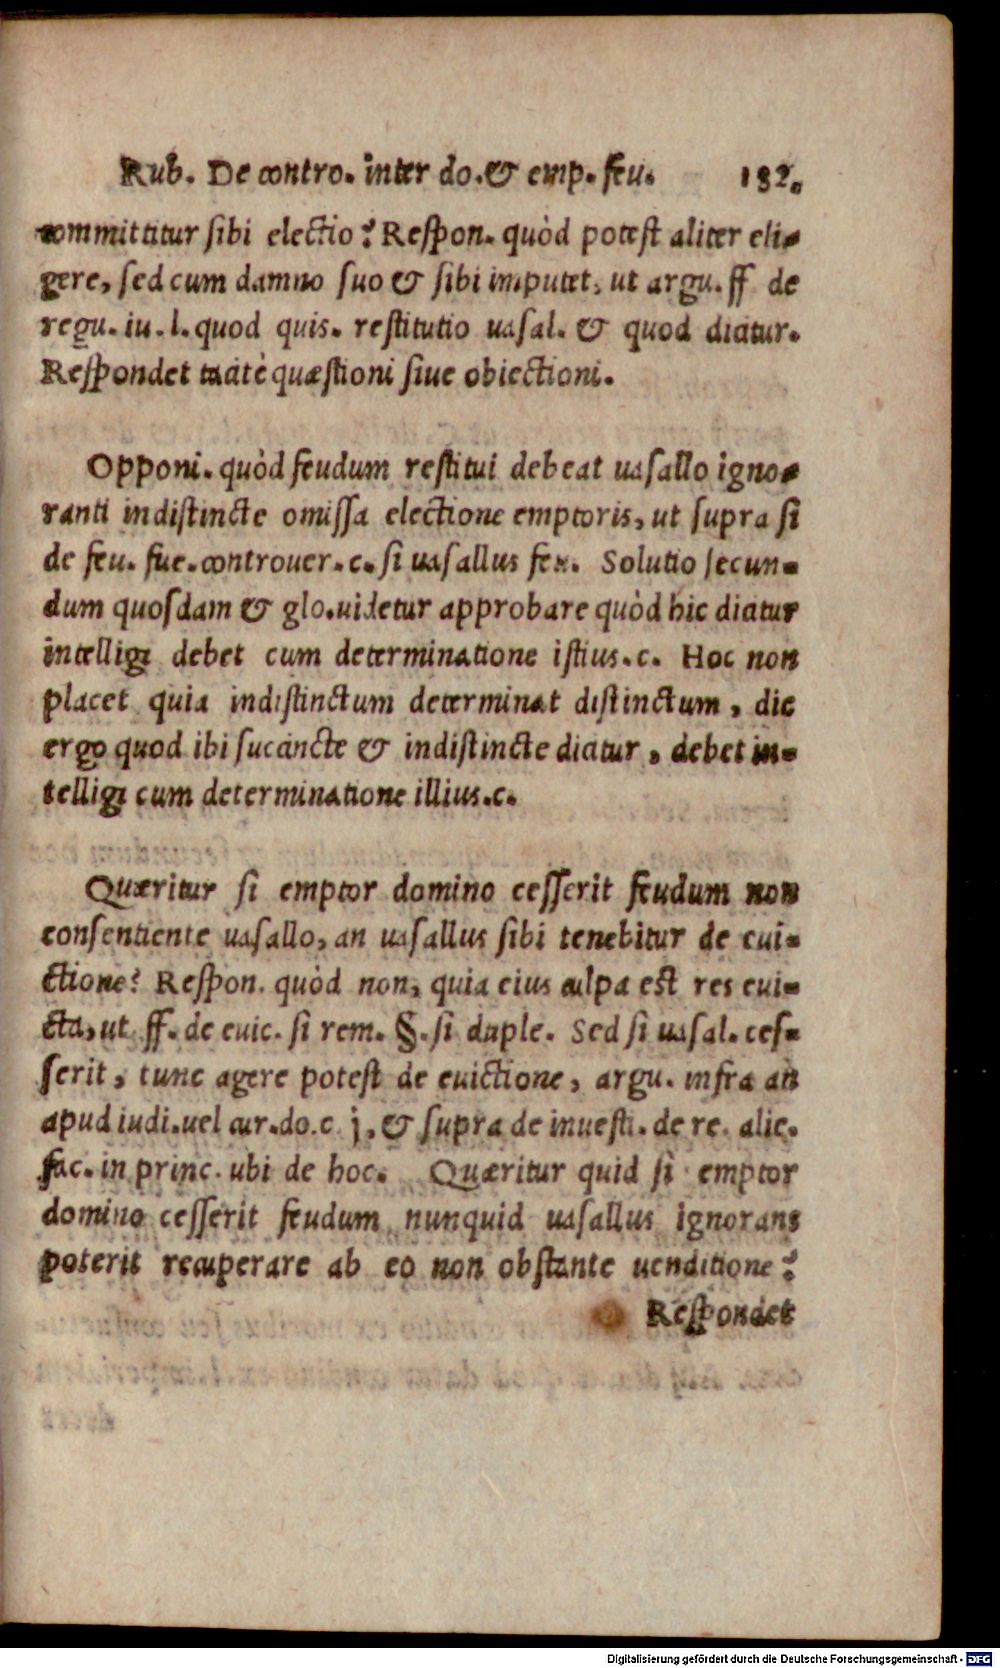 Rub. De contro. inter do. & emp. feu. 132.
committitur sibi electio? Respon. quòd potest aliter eli-
gere, sed cum damno suo & sibi imputet, ut argu. ff de
regu. iu. l. quod quis. restitutio uasal. & quod dicitur.
Respondet tacitè quæstioni siue obiectioni.
Opponi. quòd feudum restitui debeat uasallo igno-
ranti indistincte omissa electione emptoris, ut supra si
de feu. fue. controuer. c. si uasallus fex. Solutio secun-
dum quosdam & glo. uidetur approbare quòd hic dicitur
intelligi debet cum determinatione istius. c. Hoc non
placet quia indistinctum determinat distinctum, dic
ergo quod ibi succincte & indistincte dicitur, debet in-
telligi cum determinatione illius. c.
Quæritur si emptor domino cesserit feudum non
consentiente uasallo, an uasallus sibi tenebitur de eui-
ctione? Respon. quòd non, quia eius culpa est res eui-
cta, ut ff. de euic. si rem. §. si duple. Sed si uasal. ces-
serit, tunc agere potest de euictione, argu. infra an
apud iudi. uel cur. do. c j. & supra de inuesti. de re. alie.
fac. in princ. ubi de hoc. Quæritur quid si emptor
domino cesserit feudum nunquid uasallus ignorans
poterit recuperare ab eo non obstante uenditione?
Respondet
Digitalisierung gefördert durch die Deutsche Forschungsgemeinschaft - DFG